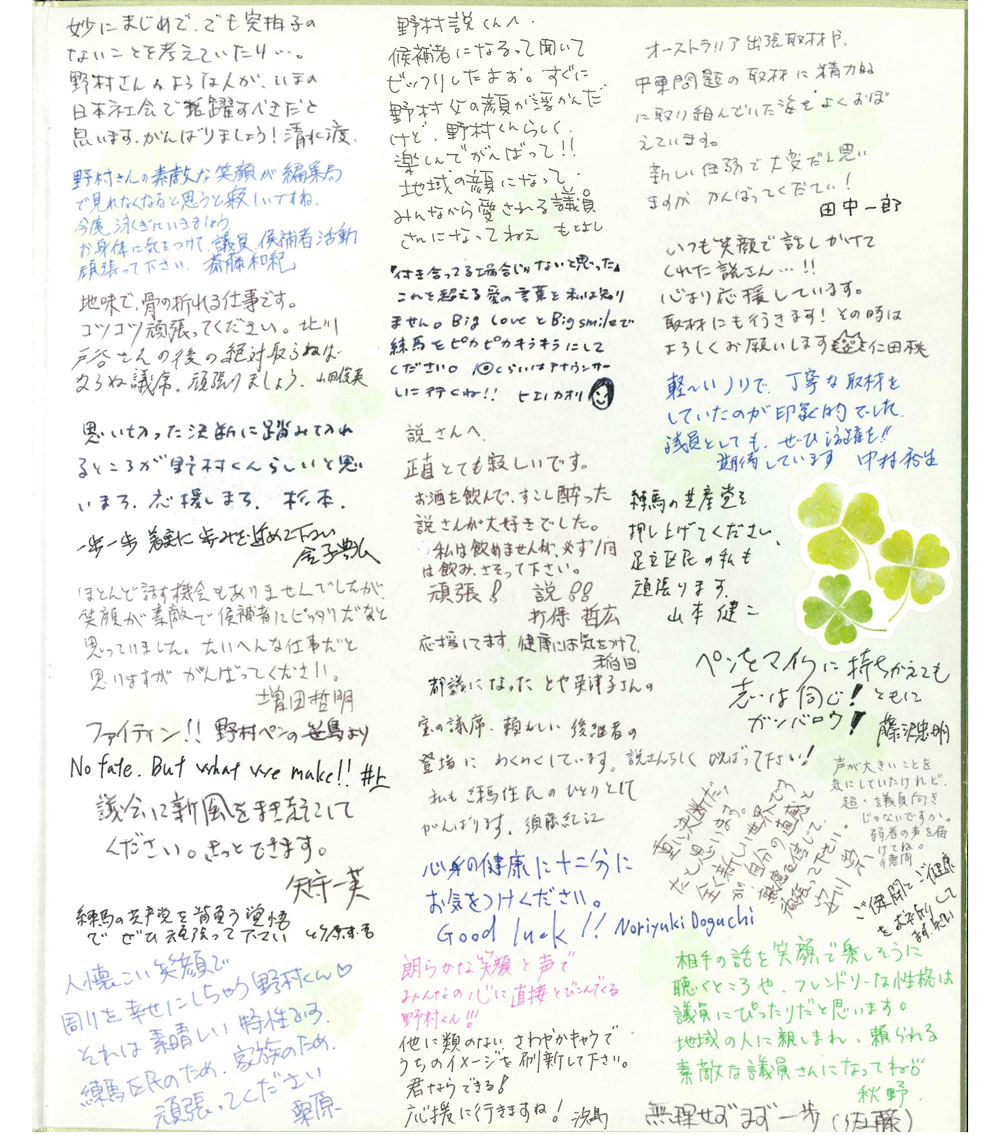 妙にまじめで、でも突拍子の
ないことを考えていたり…。
野村さんみような人が、いまの
日本社会で活躍すべきだと
思います。がんばりましょう！清水渡
野村さんの素敵な笑顔が編集局
で見れなくなると思うと寂しいですね。
今度、泳ぎにいきましょう
お身体に気をつけて、議員候補者活動
頑張って下さい。斎藤和紀
地味で、骨の折れる仕事です。
コツコツ頑張ってください。北川
戸谷さんの後の絶対取らねば
ならぬ議席。頑張りましょう。山田俊英
思い切った決断に踏み入れ
るところが野村くんらしいと思
いまる。応援しまる。杉本
一歩一歩 着実に歩みを進めて下さい
金子典弘
ほとんど話す機会もありませんでしたが、
笑顔が素敵で候補者にピッタリだなと
思っていました。たいへんな仕事だと
思いますが がんばってください。
増田哲明
ファイティン！！野村ペンの笹島より
No fate. But what we make!! #上
議会に新風をまき起こして
ください。きっとできます。
矢守一英
練馬の共産党を背負う覚悟
で ぜひ頑張ってください
人懐こい笑顔で
周りを幸せにしちゃう野村くん♡
それは素晴しい特性です。
練馬区民のため、家族のため、
頑張ってください
栗原
野村説くんへ
候補者になるって聞いて
ビックリしたよお。すぐに
野村父の顔が浮かんだ
けど、野村くんらしく、
楽しんでがんばって！！
地域の顔になって、
みんなから愛される議員
さんになってねぇ もとよし
「付き合ってる場合じゃないと思った」
これを超える愛の言葉を私は知り
ません。Big LoveとBig smileで
練馬をピカピカキラキラにして
ください。10回くらいはアナウンサー
しに行くね！！ ヒエイカオリ
説さんへ
正直とても寂しいです。
お酒を飲んで、すこし酔った
説さんが大好きでした。
私は飲めませんが、必ず1回
は飲み、さそって下さい。
頑張！ 説！！
打保 哲広
応援してます。健康には気をつけて。
稲田
都議になった とや英津子さんの
宝の議席、頼もしい後継者の
登場に わくわくしています。説さんらしく がんばって下さい！
私も練馬住民のひとりとして
がんばります。須藤紀江
心身の健康に十二分に
お気をつけください。
Good luck!! Noriyuki Doguchi
朗らかな笑顔と声で
みんなの心に直接とびこんでくる
野村くん!!!
他に類のない、さわやかキャラで
うちのイメージを刷新して下さい。
君ならできる！
応援に行きますね！ 次島
オーストラリア出張取材や、
中東問題の取材に精力的
に取り組んでいた姿をよくおぼ
えています。
新しい任務で大変だと思い
ますが がんばってください！
田中一郎
いつも笑顔で話しかけて
くれた説さん…！！
心より応援しています。
取材にも行きます！その時は
よろしくお願いします 仁田桃
軽〜いノリで、丁寧な取材を
していたのが印象的でした。
議員としても、ぜひ活躍を！！
期待しています 中村秀生
練馬の共産党を
押し上げてください。
足立区民の私も
頑張ります。
山本健二
ペンをマイクに持ちかえても
志は同じ！ともに
ガンバロウ！ 藤沢忠明
声が大きいことを
気にしていたけれど、
超・議員向き
じゃないですか。
弱者の声を届
けてね。
重い決断だっ
たと思います。
全く新しい世界です
が、自分の直感と
感覚を信じて、
頑張って下さい。
ご健闘とご健康
をお祈りして
ます。
相手の話を笑顔で楽しそうに
聴くところや、フレンドリーな性格は
議員にぴったりだと思います。
地域の人に親しまれ、頼られる
素敵な議員さんになってね
秋野
無理せずまず一歩（佐藤）